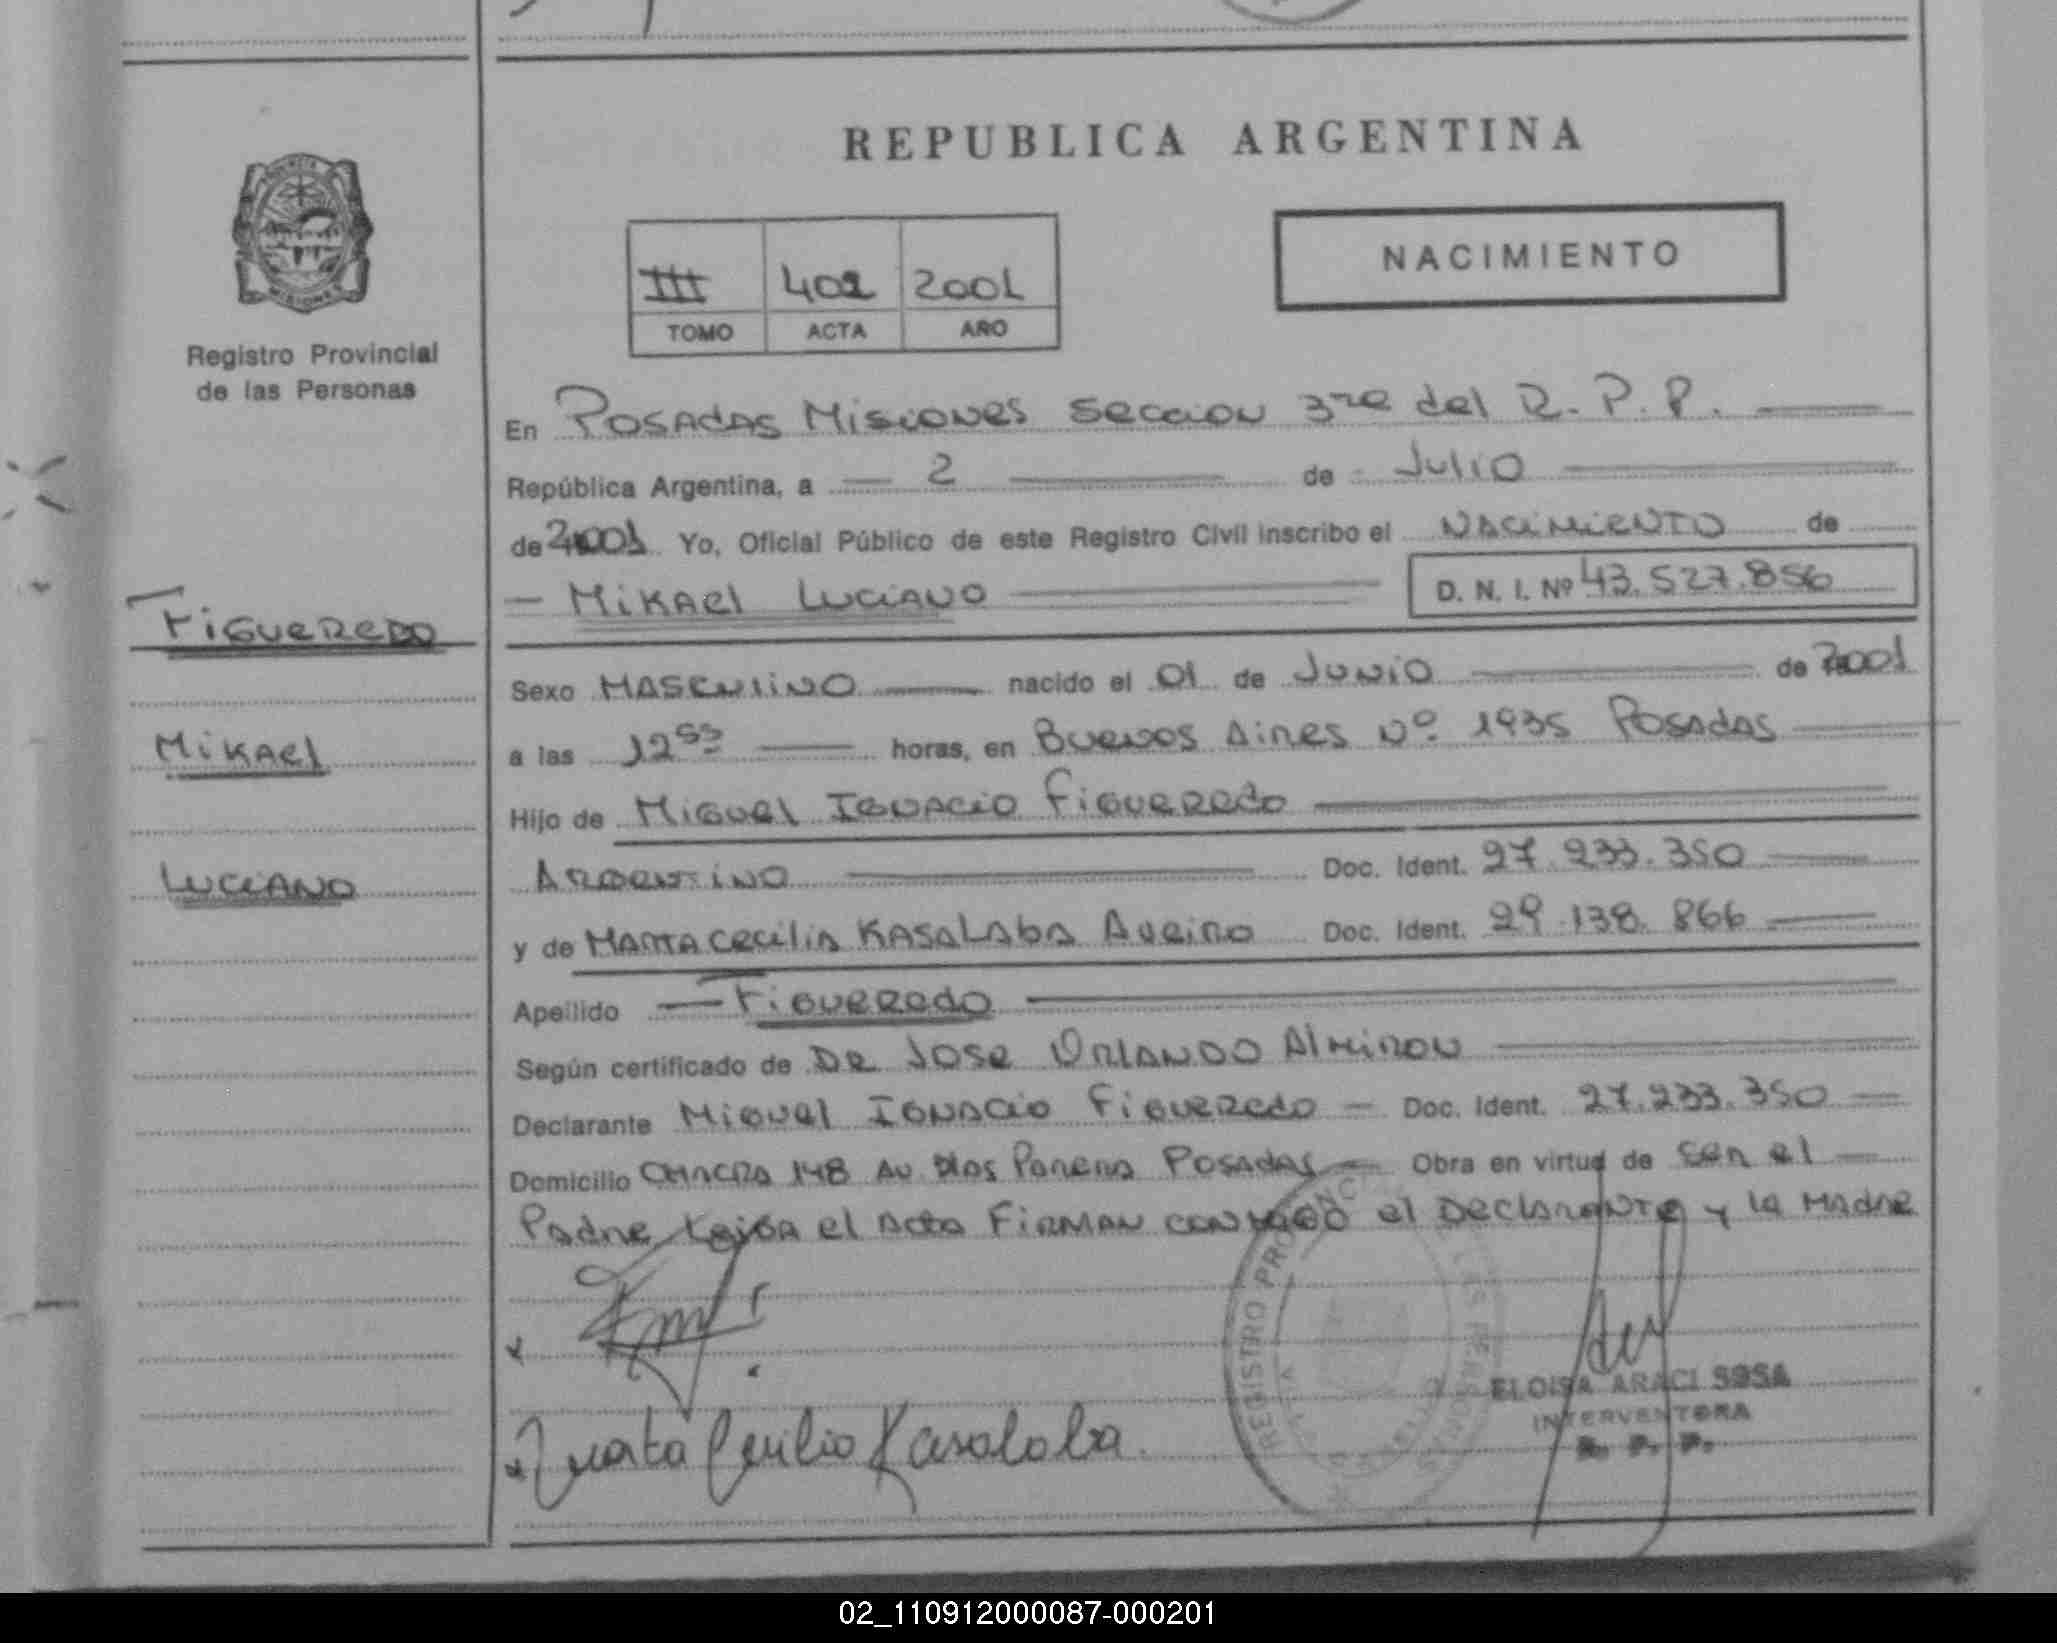 REPUBLICA ARGENTINA
NACIMIENTO
III 402 2001
TOMO ACTA AÑO
PROVINCIA
MISIONES
Registro Provincial
de las Personas
En POSADAS Misiones Seccion 3ra del R. P. P.
República Argentina, a 2 de Julio
de 2001 Yo, Oficial Público de este Registro Civil inscribo el NACIMIENTO de
Mikael Luciano D. N. I. Nº 43.527.856
Figueredo
Mikael
Luciano
Sexo MASCULINO nacido el 01 de Junio de 2001
a las 12 horas, en Buenos Aires Nº 1935 Posadas
Hijo de Miguel Ignacio Figueredo
Argentino Doc. Ident. 27.233.350
y de Marta Cecilia Kasalaba Aveiro Doc. Ident. 29.138.866
Apellido Figueredo
Según certificado de DR Jose Orlando Almiron
Declarante Miguel Ignacio Figueredo Doc. Ident. 27.233.350
Domicilio Chacra 148 Av. Blas Parera Posadas Obra en virtud de ser el
Padre Leida el Acta Firman conmigo el Declarante y la Madre
Marta Cecilia Kasalaba.
REGISTRO PROVINCIAL
ELOISA ARACI SOSA
INTERVENTORA
R. P. P.
02_110912000087-000201